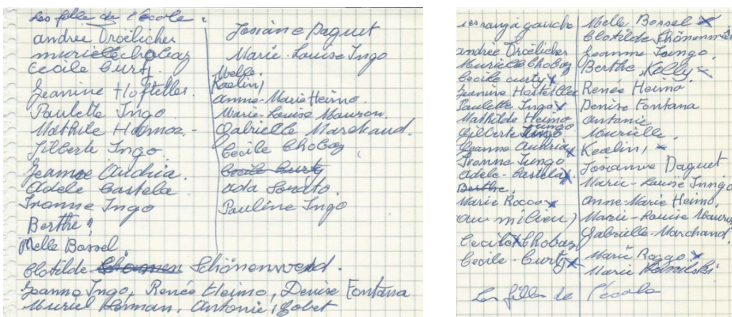 Les filles de l'école :
andrée Droëlicher
murielle chobaz
Cecile Curty
Jeanine Hofteller.
Paulette Ingo
Mathilde
Gilberte Ingo
Jeanne Audria
adele Castela.
Ivonne Ingo
Berthe ?
Melle Bossel.
Clotilde Schönenweid.
Jeanne Ingo, Renée Heimo, Denise Fontana
Muriel Roman. Antonie, Gobet
Josiane Daguet
Marie-Louise Ingo
Melle.
Kaelin,
Anne-Marie Heimo
Marie-Louise Mauron.
Gabrielle Marchand.
Cecile Chobaz
Cecile Curty
ada
Pauline Ingo
1er rangée gauche
andrée Droëlicher
Murielle Chobaz
Cecile curty x
Jeanine Hofteller
Paulette Ingo x
Mathilde Heimo
Gilberte Iungo
Jeanne Audria x
Ivonne Iungo
adele-Castela x
Berthe.
Marie Rocco x
au milieu)
Cecile x Chobaz
Cecile-Curty x
Melle Bossel x
Clotilde Schönenweid
Jeanne Iungo.
Berthe Kelly x
Renée Heimo
Denise Fontana
Antonie
Murielle.
Kealin, x
Josianne Daguet
Marie-Louise Inngo
Anne-Marie Heimo,
Marie-Louise Mauron
Gabrielle-Marchand.
Marie Roggo x
Marie
Les filles de l'école